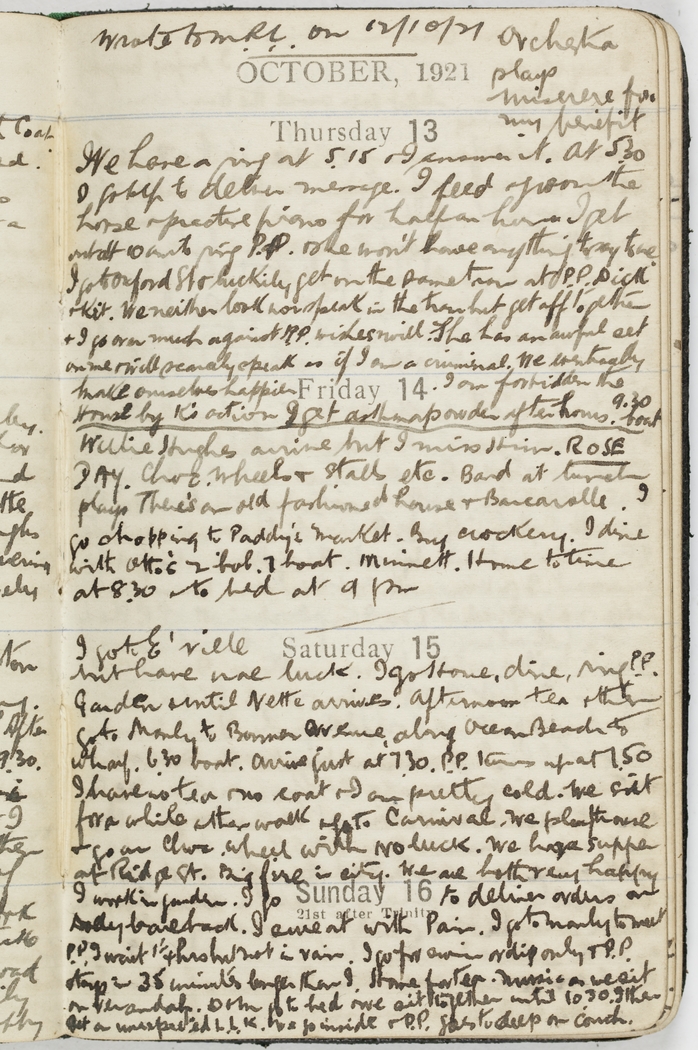 Wrote to M.R.C. on 12/10/21
Orchestra
plays
miserere for
my benefit
OCTOBER, 1921
Thursday 13
We have a ring at 5.15 & I answer it. At 5.30
I go up to deliver message. I feed & groom the
horse & practice piano for half an hour. I get
out at 10 and ring P.P. & she won't have anything to say to me
I go to Oxford St & luckily get on the same tram as P.P. Dick
& Kit. We neither look nor speak in the tram but get off together
& I go over much against P.P. wishes & will. She has an awful set
on me & will scarcely speak as if I am a criminal. We eventually
make ourselves happier. I am forbidden the
Friday 14
House by K's action I get asthma powder after hours. 9.30 boat
Willie Hughes arrive but I miss him. ROSE
DAY. Choc. wheels & Stalls etc. Band at
plays There's an old fashioned house & Barcarolle. I
go shopping to Paddy's Market. Buy crockery. I dine
with Otto's 2 bob. 7 boat. Minnett. Home to time
at 8.30 & to bed at 9 pm
I go to E'ville
Saturday 15
but have nae luck. I go Home, dine, ring P.P.
Garden & until Nette arrives. Afternoon tea & then
go to Manly to Bower Avenue, along Ocean Beach to
wharf. 6.30 boat. Arrive just at 7.30. P.P. turns up at 7.50
I have no tea & no coat & I am pretty cold. We sit
for a while & then walk & go to Carnival. We play
& go on Choc. wheel with no luck. We have supper
at Ridge St. Big fire in city. We are both very happy
Sunday 16
21st after Trinity
I work in garden. I go to deliver orders on
bareback. I sweat with Pain. I go to Manly to meet
P.P. I wait 1½ hrs but not in vain. I go for swim or dip only & P.P.
stays in 35 minutes longer than I. Home for tea. Music & we sit
on verandah. go to bed & we sit together until 10.30. I then
get an unexpected L.L.K. We go inside & P.P. goes to sleep on couch.